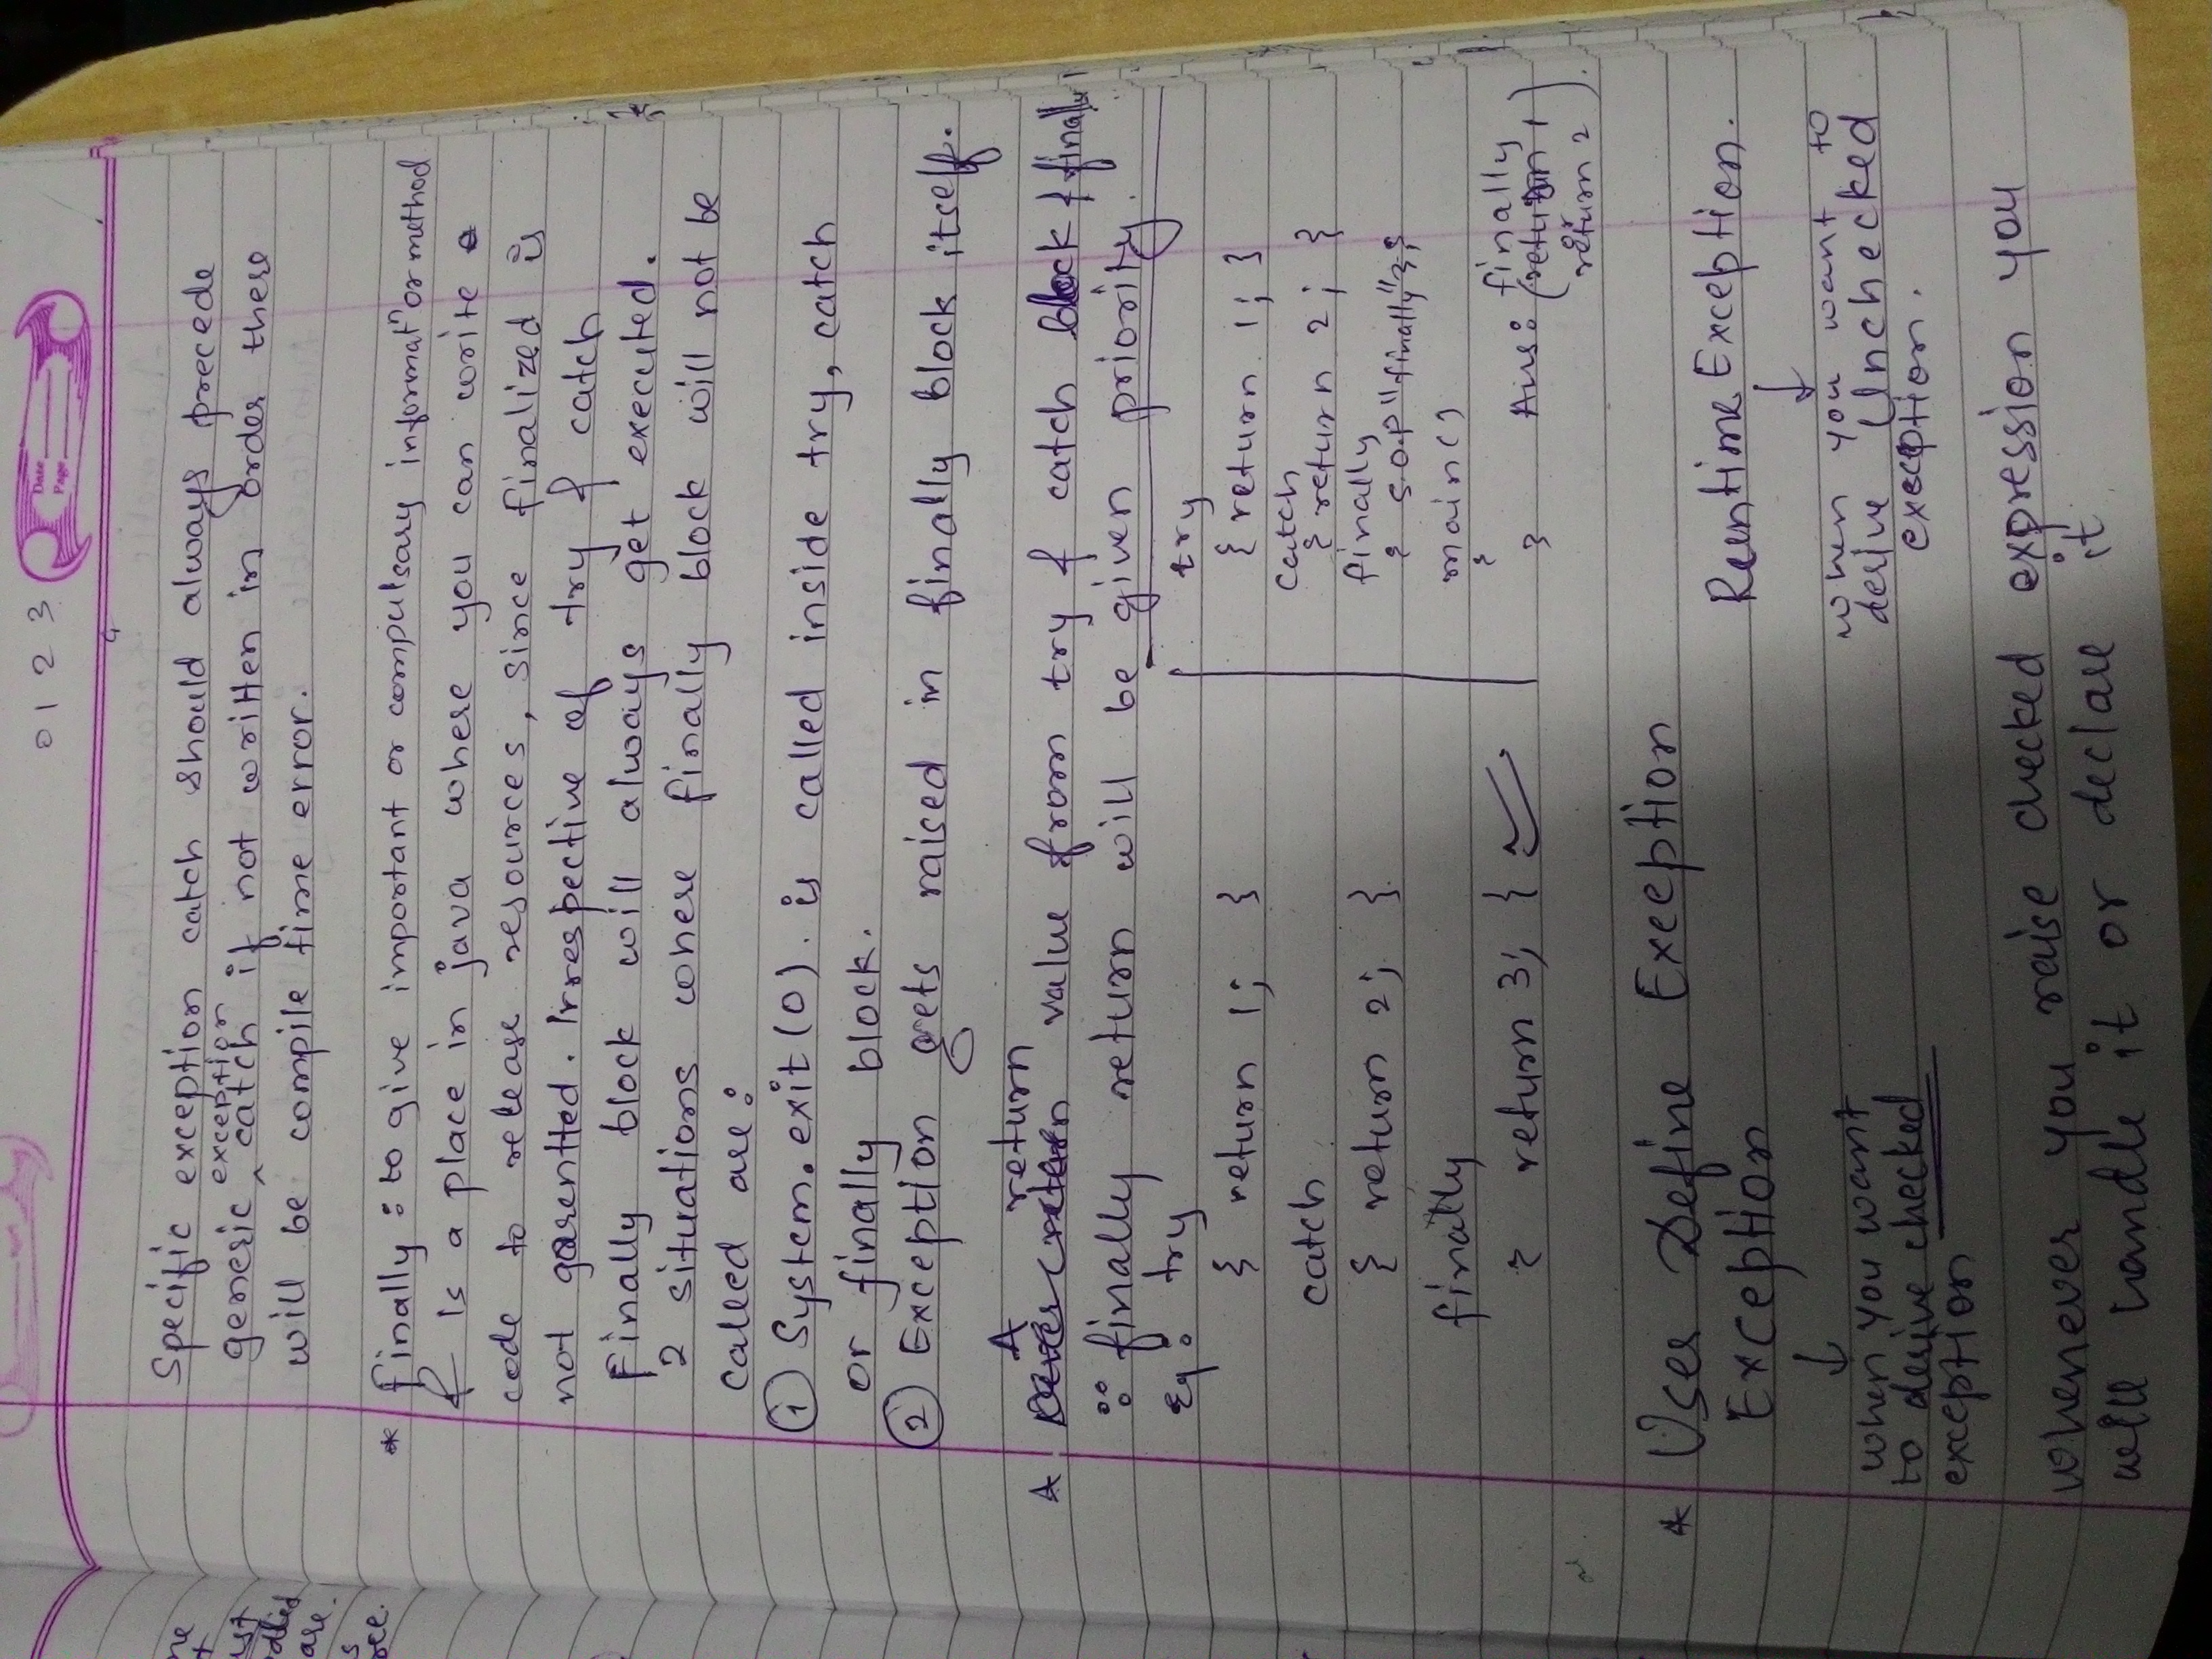 0 1 2 3
Date
Page
Specific exception catch should always precede
generic exception catch if not written in order there
will be compile time error.
* finally : to give important or compulsary informatn or method
& Is a place in java where you can write
code to release resources, since finalized is
not garentted. Irrespective of try & catch
Finally block will always get executed.
2 situations where finally block will not be
called are :
① System.exit(0). is called inside try, catch
or finally block.
② Exception gets raised in finally block itself.
A return
* value from try & catch block & finally
∴ finally return will be given priority.
Eg : try
{ return 1; }
catch
{ return 2; }
finally
{ return 3; }
try
{ return 1; }
catch
{ return 2; }
finally
{ S.O.P "finally" };
main()
{
}
Ans : finally
(return 1
or
return 2).
* User Define Exception
Exception
↓
when you want
to derive checked
exception
Runtime Exception.
↓
when you want to
derive Unchecked
exception.
whenever you raise checked expression you
will handle it or declare it